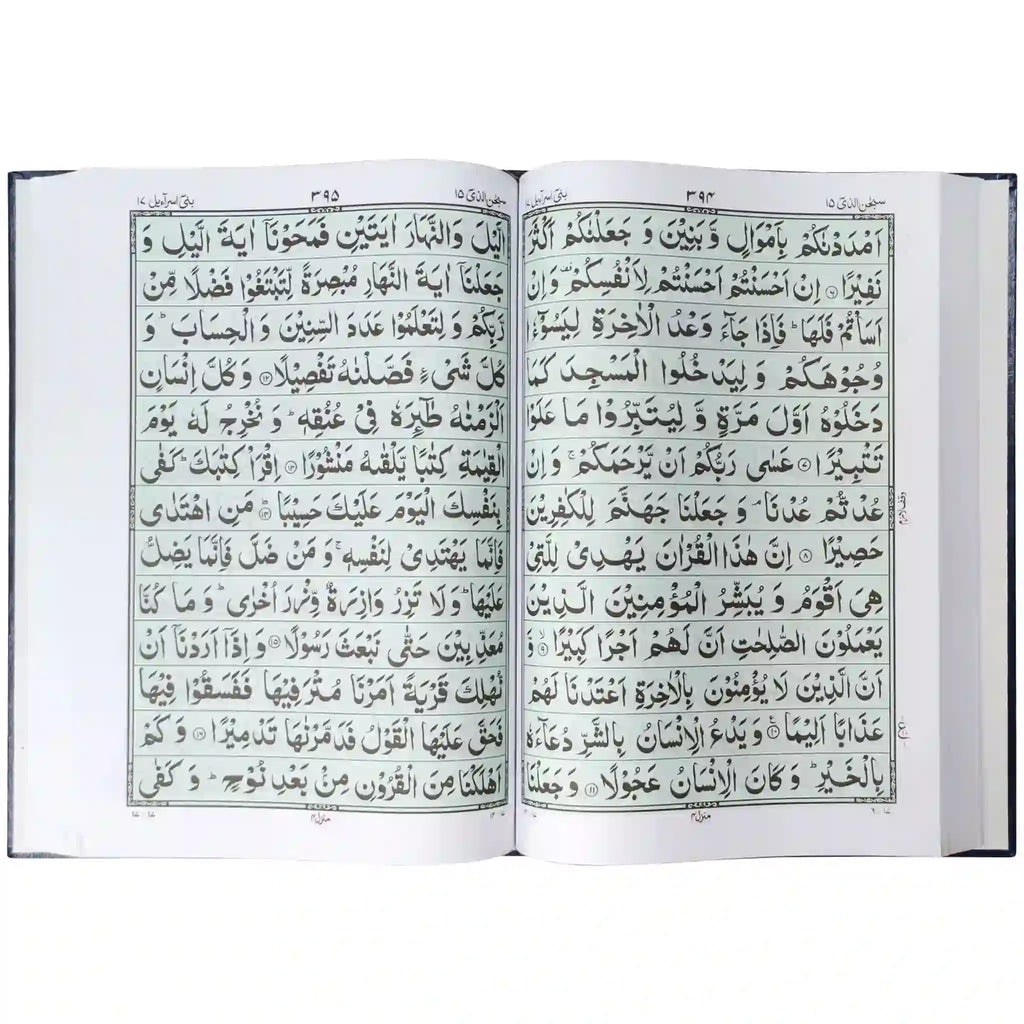 سبحٰن الذیٓ ١٥
٣٩٤
بنیٓ اسرآءیل ١٧
اَمْدَدْنٰكُمْ بِاَمْوَالٍ وَّ بَنِیْنَ وَ جَعَلْنٰكُمْ اَكْثَرَ
نَفِیْرًا ﴿٦﴾ اِنْ اَحْسَنْتُمْ اَحْسَنْتُمْ لِاَنْفُسِكُمْ ۫ وَ اِنْ
اَسَاْتُمْ فَلَهَا ؕ فَاِذَا جَآءَ وَعْدُ الْاٰخِرَةِ لِیَسُوْٓءٗا
وُجُوْهَكُمْ وَ لِیَدْخُلُوا الْمَسْجِدَ كَمَا
دَخَلُوْهُ اَوَّلَ مَرَّةٍ وَّ لِیُتَبِّرُوْا مَا عَلَوْا
تَتْبِیْرًا ﴿٧﴾ عَسٰی رَبُّكُمْ اَنْ یَّرْحَمَكُمْ ۚ وَ اِنْ
عُدْتُّمْ عُدْنَا ۘ وَ جَعَلْنَا جَهَنَّمَ لِلْكٰفِرِیْنَ
حَصِیْرًا ﴿٨﴾ اِنَّ هٰذَا الْقُرْاٰنَ یَهْدِیْ لِلَّتِیْ
هِیَ اَقْوَمُ وَ یُبَشِّرُ الْمُؤْمِنِیْنَ الَّذِیْنَ
یَعْمَلُوْنَ الصّٰلِحٰتِ اَنَّ لَهُمْ اَجْرًا كَبِیْرًا ۙ﴿٩﴾ وَّ
اَنَّ الَّذِیْنَ لَا یُؤْمِنُوْنَ بِالْاٰخِرَةِ اَعْتَدْنَا لَهُمْ
عَذَابًا اَلِیْمًا ﴿١٠﴾ وَ یَدْعُ الْاِنْسَانُ بِالشَّرِّ دُعَآءَهٗ
بِالْخَیْرِ ؕ وَ كَانَ الْاِنْسَانُ عَجُوْلًا ﴿١١﴾ وَ جَعَلْنَا
منزل ٤
بنیٓ اسرآءیل ١٧
٣٩٥
سبحٰن الذیٓ ١٥
الَّیْلَ وَ النَّهَارَ اٰیَتَیْنِ فَمَحَوْنَاۤ اٰیَةَ الَّیْلِ وَ
جَعَلْنَاۤ اٰیَةَ النَّهَارِ مُبْصِرَةً لِّتَبْتَغُوْا فَضْلًا مِّنْ
رَّبِّكُمْ وَ لِتَعْلَمُوْا عَدَدَ السِّنِیْنَ وَ الْحِسَابَ ؕ وَ
كُلَّ شَیْءٍ فَصَّلْنٰهُ تَفْصِیْلًا ﴿١٢﴾ وَ كُلَّ اِنْسَانٍ
اَلْزَمْنٰهُ طٰٓئِرَهٗ فِیْ عُنُقِهٖ ؕ وَ نُخْرِجُ لَهٗ یَوْمَ
الْقِیٰمَةِ كِتٰبًا یَّلْقٰىهُ مَنْشُوْرًا ﴿١٣﴾ اِقْرَاْ كِتٰبَكَ ؕ كَفٰی
بِنَفْسِكَ الْیَوْمَ عَلَیْكَ حَسِیْبًا ؕ﴿١٤﴾ مَنِ اهْتَدٰی
فَاِنَّمَا یَهْتَدِیْ لِنَفْسِهٖ ۚ وَ مَنْ ضَلَّ فَاِنَّمَا یَضِلُّ
عَلَیْهَا ؕ وَ لَا تَزِرُ وَازِرَةٌ وِّزْرَ اُخْرٰی ؕ وَ مَا كُنَّا
مُعَذِّبِیْنَ حَتّٰی نَبْعَثَ رَسُوْلًا ﴿١٥﴾ وَ اِذَاۤ اَرَدْنَاۤ اَنْ
نُّهْلِكَ قَرْیَةً اَمَرْنَا مُتْرَفِیْهَا فَفَسَقُوْا فِیْهَا
فَحَقَّ عَلَیْهَا الْقَوْلُ فَدَمَّرْنٰهَا تَدْمِیْرًا ﴿١٦﴾ وَ كَمْ
اَهْلَكْنَا مِنَ الْقُرُوْنِ مِنْۢ بَعْدِ نُوْحٍ ؕ وَ كَفٰی
منزل ٤